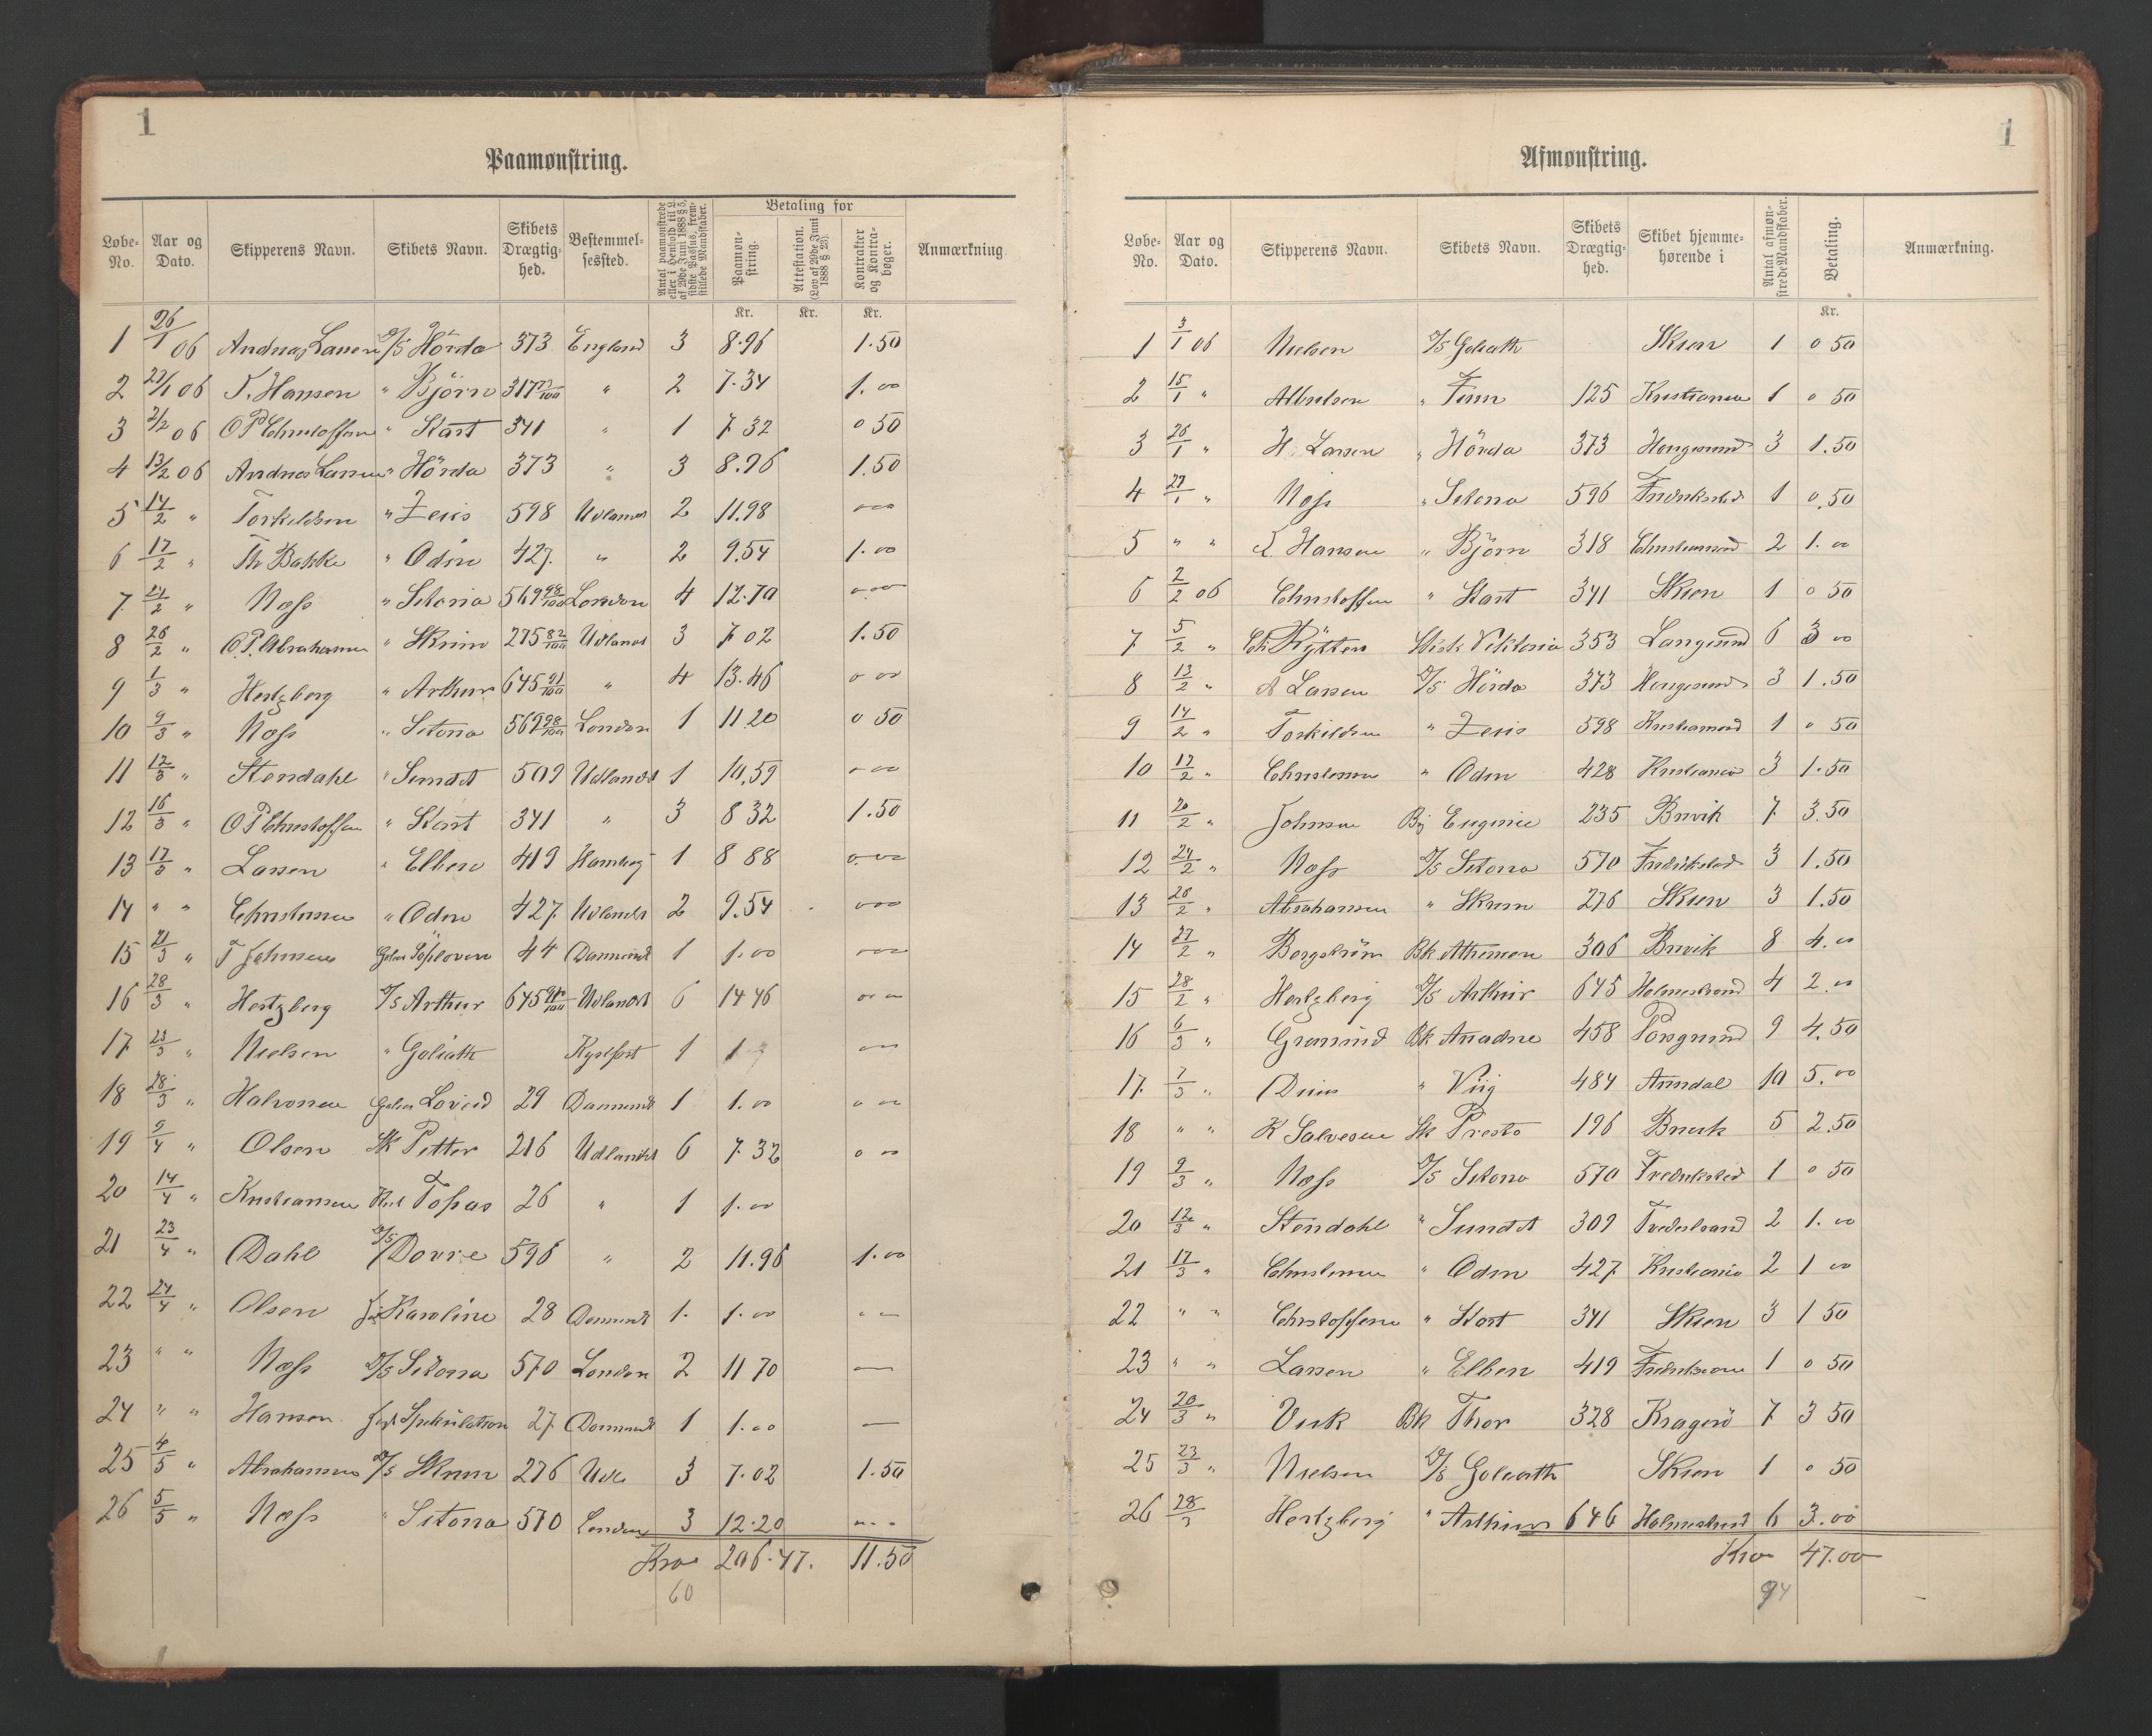 1
Paamønstring.
Løbe-No. Aar og Dato. Skipperens Navn. Skibets Navn. Skibets Drægtighed. Bestemmelsessted. Antal paamønstrede eller i Henhold til L. af 29de Juni 1888 § 5, sidste Passus, fremstillede Mandskaber. Betaling for Paamønstring. Attestation. (Lov af 29de Juni 1888 § 23). Kontrakter og Kontrabøger. Anmærkning
Kr. Kr. Kr.
1 26/1 06 Andreas Larsen D/S Hörda 373 England 3 8.96 1.50
2 27/1 06 T. Hansen " Björn 317 77/100 " 2 7.34 1.00
3 2/2 06 O P Christoffersen " Start 341 " 1 7 32 0 50
4 13/2 06 Andreas Larsen " Hörda 373 " 3 8.96 1.50
5 14/2 " Torkildsen " Zeus 598 Udlandet 2 11.98
6 17/2 " Th Bakke " Odin 427. " 2 9.54 1.00
7 24/2 " Næss " Sitona 569 98/100 London 4 12.70
8 26/2 " O.P. Abrahamsen " Skrim 275 82/100 Udlandet 3 7 02 1.50
9 1/3 " Hertzberg " Arthur 645 91/100 " 4 13.46
10 9/3 " Næss " Sitona 569 98/100 London 1 11 20 0 50
11 12/3 " Stendahl " Sundet 509 Udlandet 1 10,59
12 16/3 " O P Christoffersen " Start 341 " 3 8 32 1.50
13 17/3 " Larsen " Elben 419 Hamburg 1 8 88
14 " " Christensen " Odin 427. Udlandet 2 9.54
15 21/3 " T Johnsen 44 Danmark 1 1.00
16 28/3 " Hertzberg D/S Arthur 645 Udlandet 6 14 46
17 23/3 " Nielsen " Goliath Kystfart 1 1
18 28/3 " Halvorsen Lovied 29 Danmark 1 1.00
19 9/4 " Olsen Sk Petter 216 Udlandet 6 7.32
20 14/4 " Kristiansen Topas 26 " 1 1.00
21 23/4 " Dahl D/S Dovre 596 " 2 11.96 1.00
22 24/4 " Olsen Karoline 28 Danmark 1. 1.00
23 " " Næss D/S Sitona 570 London 2 11 70
24 " " Hansen Spekulation 27. Danmark 1 1.00
25 4/5 " Abrahamsen D/S Skrim 276 Udl. 3 7.02 1.50
26 5/5 " Næss " Sitona 570 London 3 12.20
Kro 206.47. 11.50
60
1
Afmønstring.
Løbe-No. Aar og Dato. Skipperens Navn. Skibets Navn. Skibets Drægtighed. Skibet hjemmehørende i Antal afmønstrede Mandskaber. Betaling. Anmærkning.
Kr.
1 3/1 06 Nielsen D/S Goliath Skien 1 0 50
2 15/1 " Albretsen " Finn 125 Kristiania 1 0 50
3 26/1 " H. Larsen " Hörda 373 Haugesund 3 1.50
4 27/1 " Næss " Sitona 596 Fredrikstad 1 0.50
5 " " T. Hansen " Björn 318 Christiansund 2 1.00
6 2/2 06 Christoffersen " Start 341 Skien 1 0 50
7 5/2 " Chr Rytter Viktoria 353 Langesund 6 3 00
8 13/2 " A Larsen D/S Hörda 373 Haugesund 3 1.50
9 14/2 " Torkildsen " Zeus 598 Kristiansund 1 0 50
10 17/2 " Christensen " Odin 428 Kristiania 3 1.50
11 20/2 " Johnsen Bg Eugenie 235 Brevik 7 3.50
12 24/2 " Næss D/S Sitona 570 Fredrikstad 3 1.50
13 26/2 " Abrahamsen " Skrim 276 Skien 3 1.50
14 27/2 " Bergström Bk Athenien 306 Brevik 8 4.00
15 28/2 " Hertzberg D/S Arthur 645 Holmestrand 4 2.00
16 6/3 " Grønsund Bk Ariadne 458 Porsgrund 9 4.50
17. 7/3 " " Viig 484 Arendal 10 5.00
18 " " K Salvesen Sk Presto 196 Brevik 5 2.50
19 9/3 " Næss D/S Sitona 570 Fredrikstad 1 0 50
20 12/3 " Stendahl " Sundet 309 2 1.00
21 17/3 " Christensen " Odin 427. Kristiania 2 1 00
22 " " Christoffersen " Start 341 Skien 3 1 50
23 " " Larsen " Elben 419 1 0 50
24 20/3 " Virik Bk Thor 328 Kragerö 7 3 50
25 23/3 " Nielsen D/S Goliath Skien 1 0 50
26 28/3 Hertzberg " Arthur 646 Holmestrand 6 3.00
Kro 47.00
94